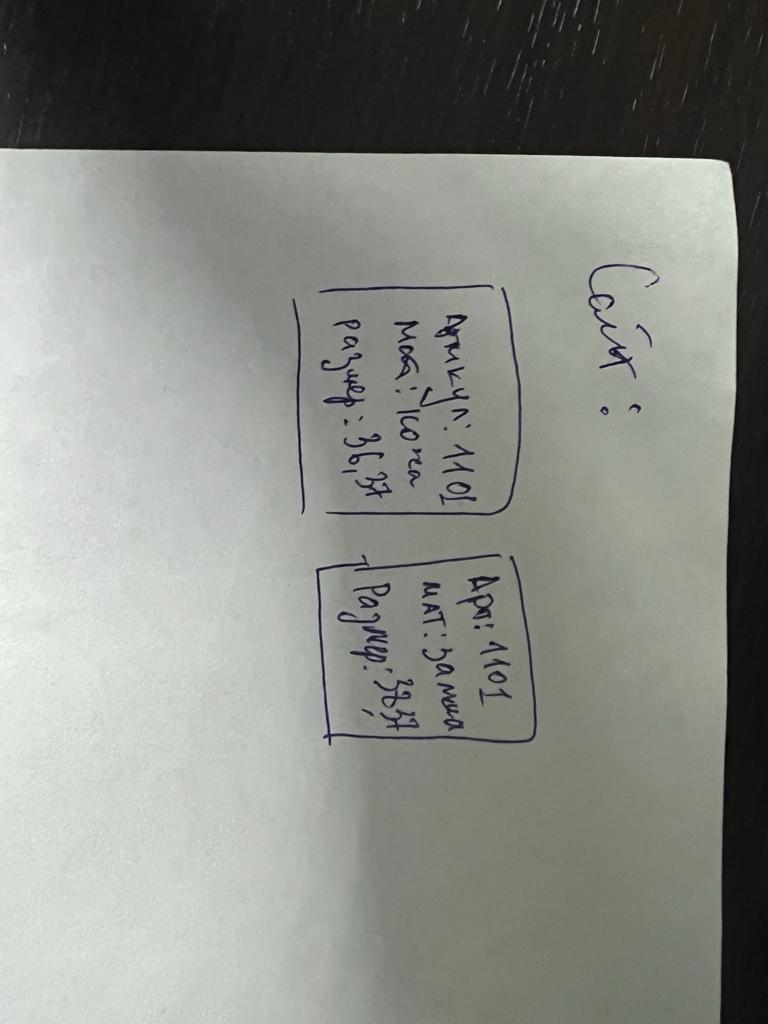 Сайт:
Артикул: 1101
Мат: кожа
размер: 36,37
Арт: 1101
мат: замша
Размер: 38,37